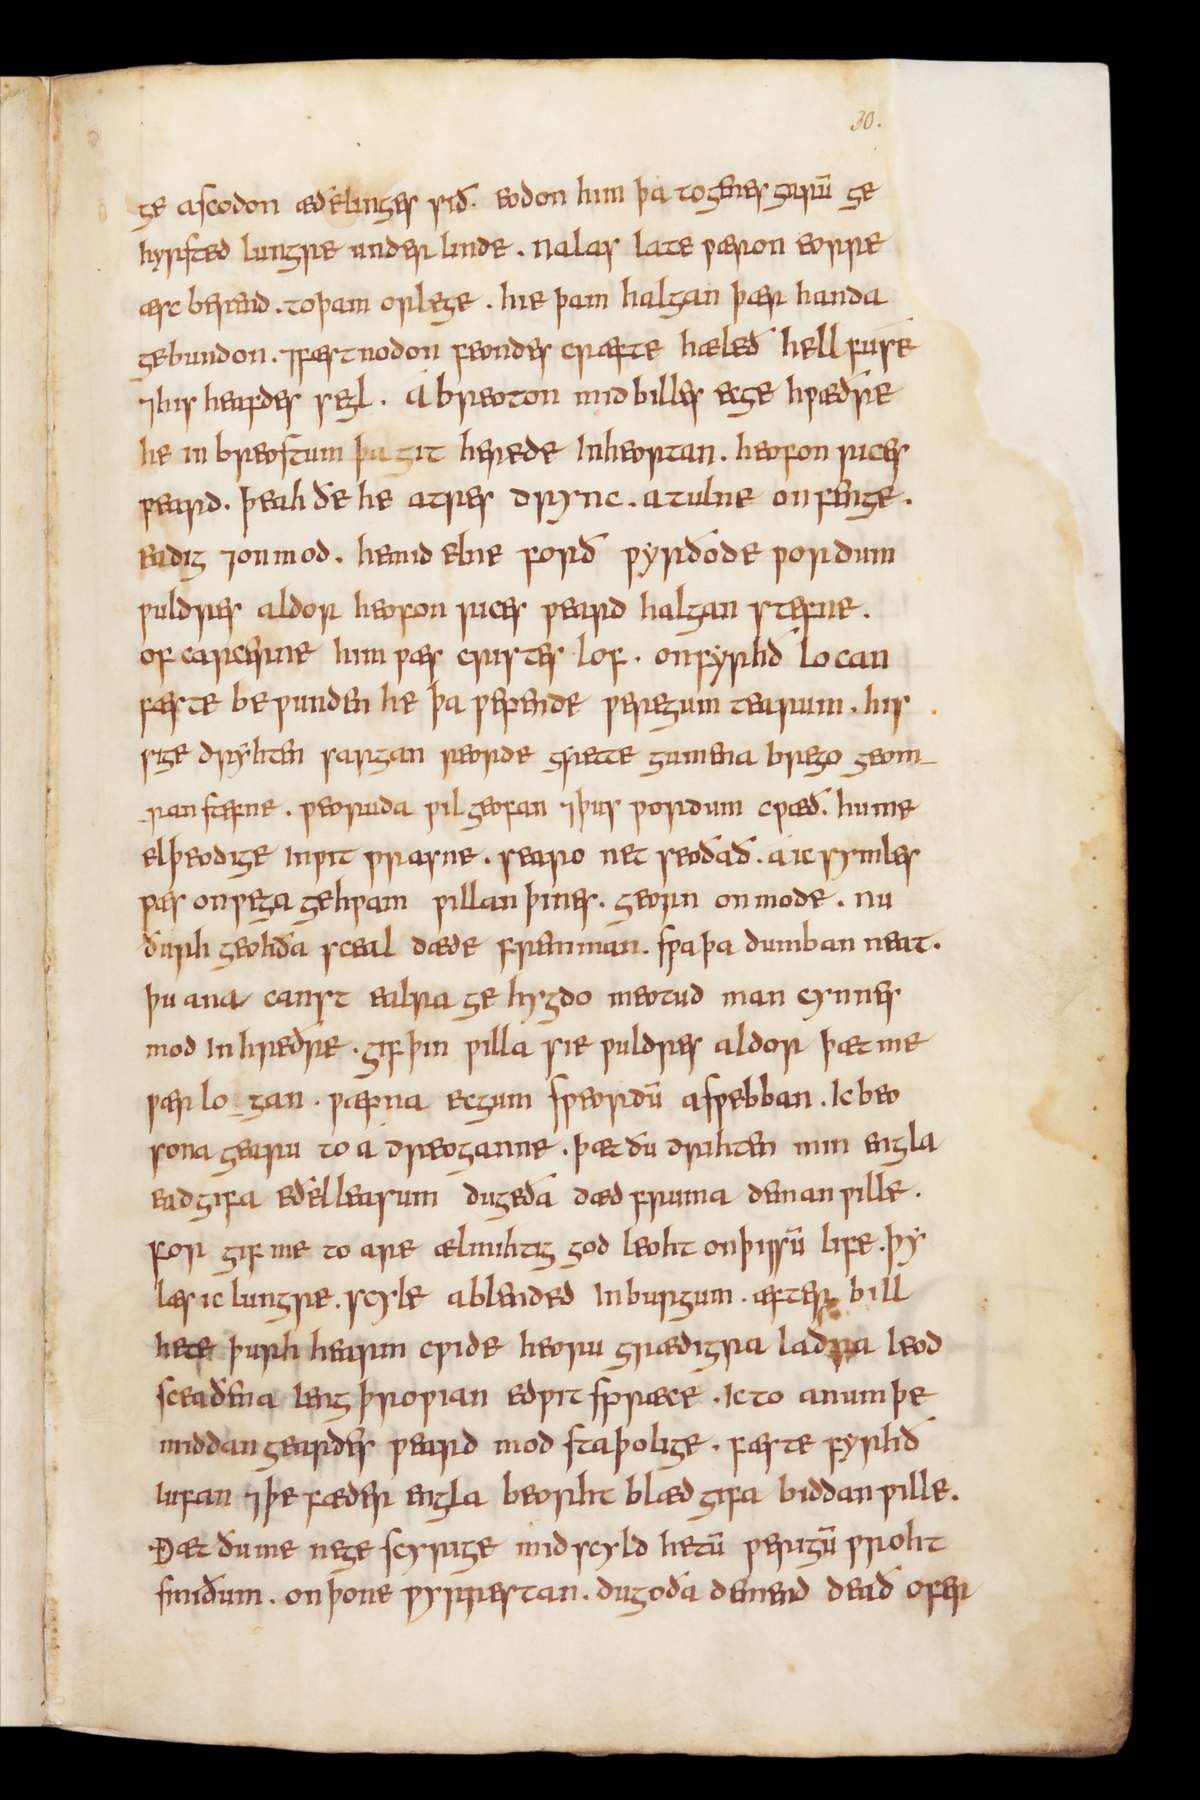 30.
ge ascodon æðelinges sið. eodon him þa togenes garū ge
hyrsted lungre under linde. nalas late wæron eorre
æsc berend. toþam orlege. hie þam halgan þær handa
gebundon. ⁊fæstnodon feondes cræfte hæleð hellfuse
⁊his heafdes segl. abreoton midbilles ecge hwæðre
he in breostum þa git herede Inheortan. heofon rices
weard. þeah ðe he atres drync. atulne onfenge.
eadig ⁊onmod. hemid elne forð wyrðode wordum
wuldres aldor heofon rices weard halgan stefne.
of carcerne him wæs cristes lof. onfyrhð locan
fæste bewunden he þa wepende weregum tearum. his
sige dryhten sargan reorde grette gumena brego geom
ran stefne. weoruda wilgeofan ⁊þus wordum cwæð. hume
elþeodige Inwit wrasne. searo net seoðað. á ic symles
wæs onwega gehwam willan þines. georn onmode. nu
ðurh geohða sceal dæde fremman. swaþa dumban neat.
þu ana canst ealra ge hygdo meotud man cynnes
mod In hreðre. gif þin willa sie wuldres aldor þæt me
wær lo gan. wæpna ecgum sweordū aswebban. Ic beo
sona gearu to á dreoganne. þæt ðu drihten min engla
eadgifa eðelleasum dugeða dæd fruma deman wille.
for gif me to are ælmihtig god leoht onþissū life. þy
læs ic lungre. scyle ablended Inburgum. æfter bill
hete þurh hearm cwide heoru grædigra laðra leod
sceaðena leng þrowian edwit spræce. Ic to anum þe
middan geardes weard mod staþolige. fæste fyrhð
lufan ⁊þe fæder engla beorht blæd gifa biddan wille.
Ðæt ðume nege scyrige midscyld hetū werigū wroht
smiðum. onþone wyrrestan. dugoða demend deað ofer